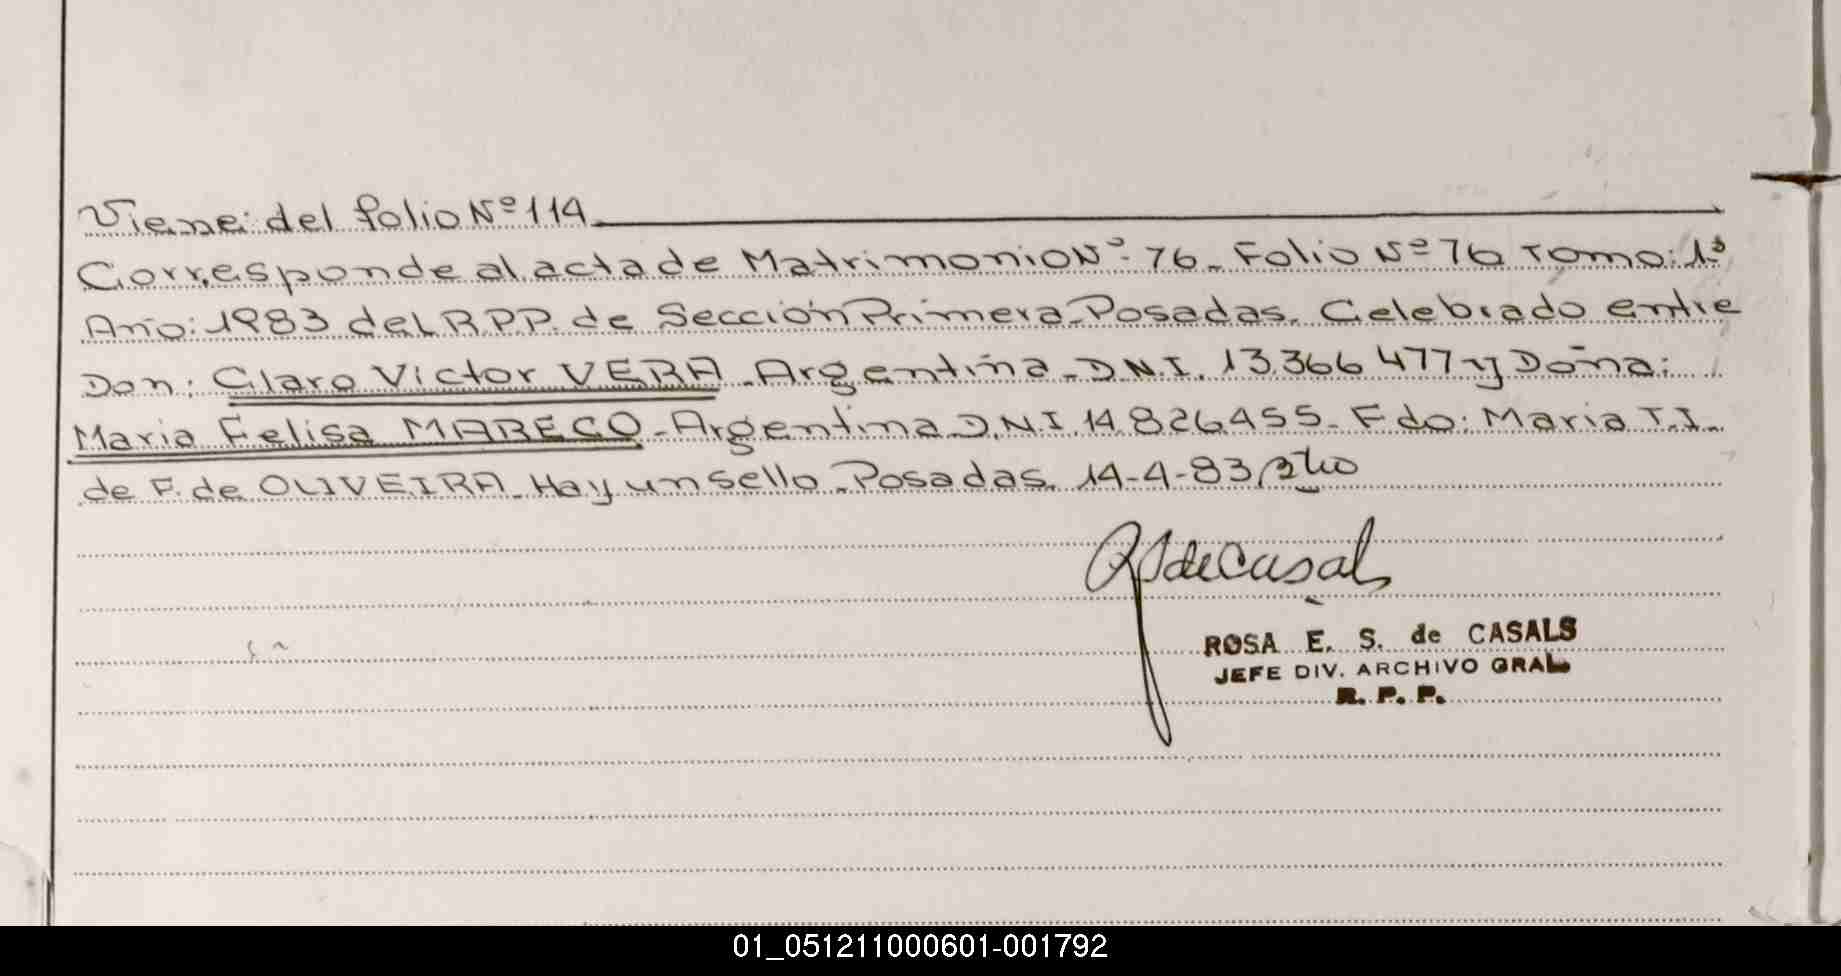 Viene: del folio Nº 114
Corresponde al acta de Matrimonio Nº 76. Folio Nº 76 Tomo: 1º
Año: 1983 del R.P.P. de Sección Primera Posadas. Celebrado entre
Don: Claro Victor VERA. Argentina. D.N.I. 13.366 477 y Doña:
Maria Felisa MARECO. Argentina D.N.I. 14.826.455. Fdo: Maria T.I.
de F. de OLIVEIRA. Hay un sello. Posadas. 14-4-83
RS de Casals
ROSA E. S. de CASALS
JEFE DIV. ARCHIVO GRAL
R. P. P.
01_051211000601-001792